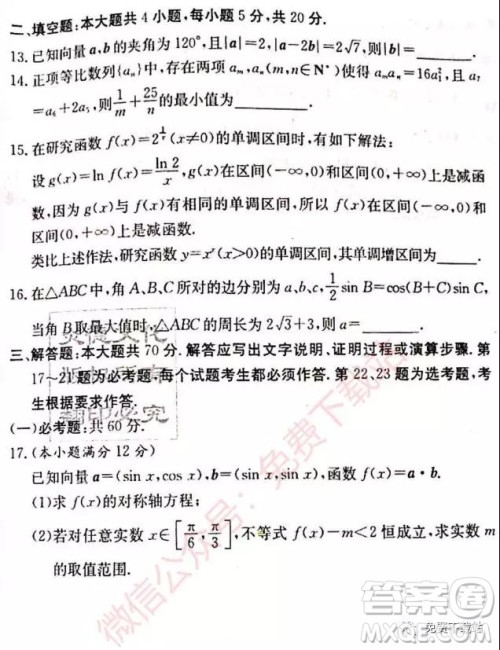 二、填空题:本大题共4小题,每小题5分,共20分.
13.已知向量a,b的夹角为120°,且|a|=2,|a-2b|=2√7,则|b|=____.
14.正项等比数列{aₙ}中,存在两项aₘ,aₙ(m,n∈N*)使得aₘaₙ=16a₁²,且a₇
=a₆+2a₅,则1/m+25/n的最小值为____.
15.在研究函数f(x)=2^(1/x)(x≠0)的单调区间时,有如下解法:
设g(x)=ln f(x)=ln 2/x,g(x)在区间(-∞,0)和区间(0,+∞)上是减函
数,因为g(x)与f(x)有相同的单调区间,所以f(x)在区间(-∞,0)和
区间(0,+∞)上是减函数.
类比上述作法,研究函数y=xˣ(x>0)的单调区间,其单调增区间为____.
16.在△ABC中,角A、B、C所对的边分别为a,b,c,1/2 sin B=cos(B+C)sin C,
当角B取最大值时,△ABC的周长为2√3+3,则a=____.
三、解答题:本大题共70分.解答应写出文字说明、证明过程或演算步骤.第
17~21题为必考题,每个试题考生都必须作答.第22、23题为选考题,考
生根据要求作答.
(一)必考题:共60分.
17.(本小题满分12分)
已知向量a=(sin x,cos x),b=(sin x,sin x),函数f(x)=a·b.
(1)求f(x)的对称轴方程;
(2)若对任意实数x∈[π/6,π/3],不等式f(x)-m<2恒成立,求实数m
的取值范围.
翻印必究
微信公众号:免费下载站
答案圈
免费下载站